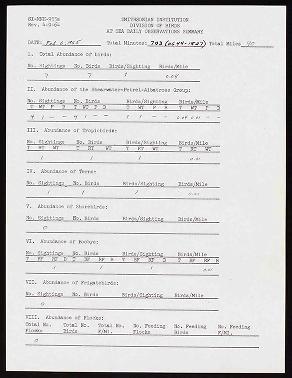 SI-MNH-973a SMITHSONIAN INSTITUTION
Rev. DIVISION OF BIRDS
AT SEA DAILY OBSERVATIONS SUMMARY
DATE: Feb 6, 1965 Total Minutes: 703 (0644-1827) Total Miles 90
I. Total Abundance of Birds:
No. Sightings No. Birds Birds/Sighting Birds/Mile
7 7 1 0.08
II. Abundance of the Shearwater-Petrel-Albatross Group:
No. Sightings No. Birds Birds/Sighting Birds/Mile
III. Abundance of Tropicbirds:
No. Sightings No. Birds Birds/Sighting Birds/Mile
T RT WT T RT WT T RT WT T RT WT
1 1 1 0.01
IV. Abundance of Terns:
No. Sightings No. Birds Birds/Sighting Birds/Mile
1 1 1 0.01
V. Abundance of Shorebirds:
No. Sightings No. Birds Birds/Sighting Birds/Mile
0
VI. Abundance of Boobys:
No. Sightings No. Birds Birds/Sighting Birds/Mile
1 1 1 0.01
VII. Abundance of Frigatebirds:
No. Sightings No. Birds Birds/Sighting Birds/Mile
0
VIII. Abundance of Flocks:
Total No. Total No. Total No. No. Feeding No. Feeding
Flocks Birds F/MI. Flocks F/MI.
0